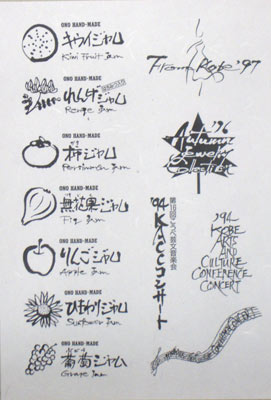 ONO HAND-MADE
キウイジャム
Kiwi Fruit Jam
ONO HAND-MADE
れんげジャム
Renge Jam
ONO HAND-MADE
柿ジャム
Persimmon Jam
ONO HAND-MADE
無花果ジャム
Fig Jam
ONO HAND-MADE
りんごジャム
Apple Jam
ONO HAND-MADE
ひまわりジャム
Sunflower Jam
ONO HAND-MADE
葡萄ジャム
Grape Jam
From Kobe '97
'96
Autumn
Jewelry
Collection
'94 KACCコンサート
'94
KOBE
ARTS
AND
CULTURE
CONFERENCE
CONCERT